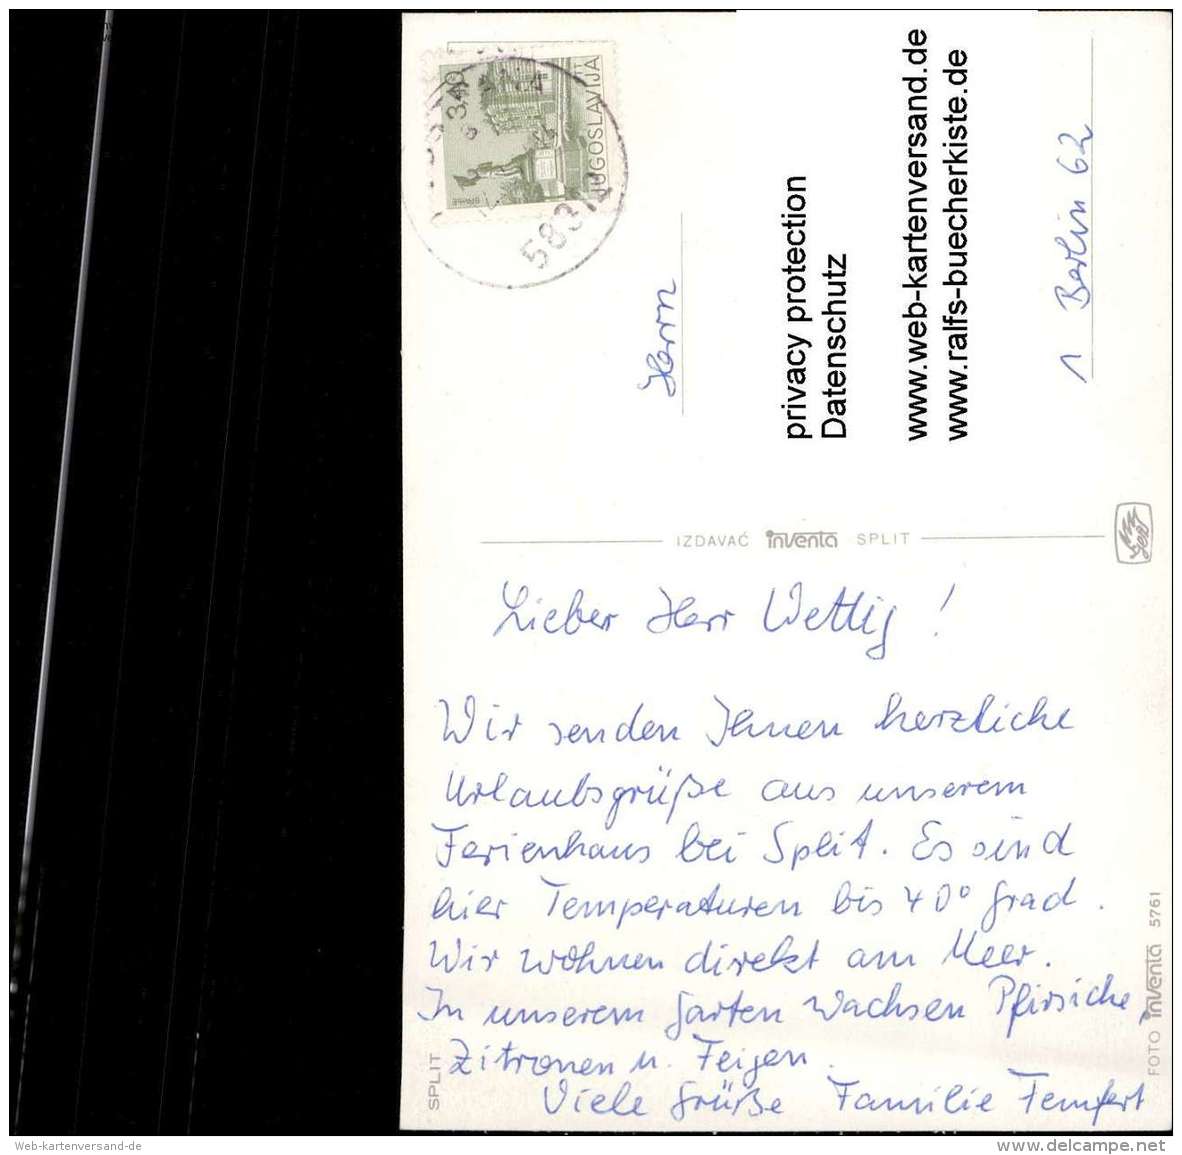 3.40
ВРАЊЕ
JUGOSLAVIJA
5831
Herrn
privacy protection
Datenschutz
www.web-kartenversand.de
www.ralfs-buecherkiste.de
1 Berlin 62
IZDAVAČ inventa SPLIT
Lieber Herr Wettig!
Wir senden Ihnen herzliche
Urlaubsgrüße aus unserem
Ferienhaus bei Split. Es sind
hier Temperaturen bis 40° Grad.
Wir wohnen direkt am Meer.
In unserem Garten wachsen Pfirsiche,
Zitronen u. Feigen.
Viele Grüße Familie Tempert
SPLIT
FOTO inventa 5761
Web-kartenversand-de
www.delcampe.net